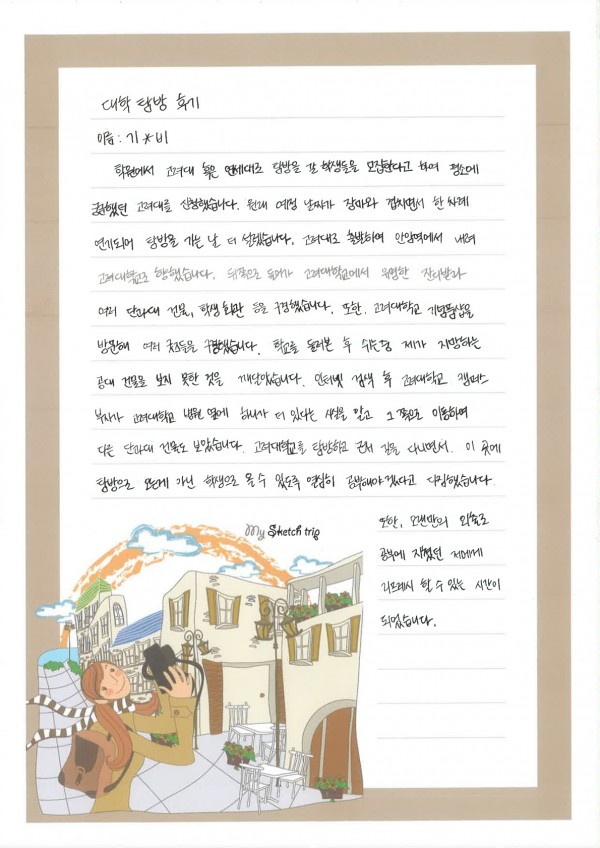 대학 탐방 후기
이름 : 기*비
학원에서 고려대 혹은 연세대로 탐방을 갈 학생들을 모집한다고 하여 평소에
원했던 고려대를 신청했습니다. 원래 예정 날짜가 장마와 겹치면서 한 차례
연기되어 탐방을 가는 날 더 설렜습니다. 고려대로 출발하여 안암역에서 내려
고려대학교로 향했습니다. 뒤쪽으로 들어가 고려대학교에서 유명한 잔디밭과
여러 단과대 건물, 학생 회관 등을 구경했습니다. 또한, 고려대학교 기념품샵을
방문해 여러 굿즈들을 구경했습니다. 학교를 둘러본 후 쉬는 중 제가 지망하는
공대 건물을 보지 못한 것을 깨달았습니다. 인터넷 검색 후 고려대학교 캠퍼스
부지가 고려대학교 병원 옆에 하나가 더 있다는 사실을 알고 그 쪽으로 이동하여
다른 단과대 건물도 보았습니다. 고려대학교를 탐방하고 근처 길을 다니면서, 이 곳에
탐방으로 오는게 아닌 학생으로 올 수 있도록 열심히 공부해야겠다고 다짐했습니다.
또한, 오랜만의 외출로
공부에 지쳤던 저에게
리프레시 할 수 있는 시간이
되었습니다.
My Sketch trip